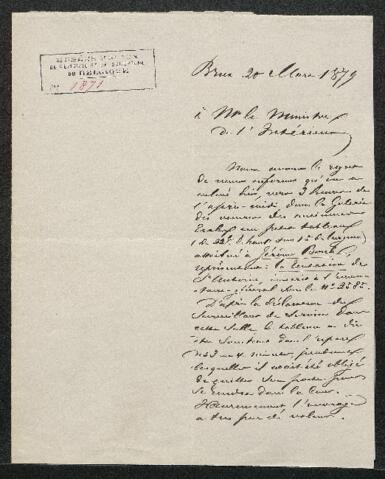 MUSÉES ROYAUX
DE PEINTURE ET DE SCULPTURE
DE BELGIQUE
N° 1871
Brux 20 Mars 1879
à Mr le Ministre
de l'Intérieur
Nous avons le regret
de vous informer qu'on a
enlevé hier, vers 3 heures de
l'après-midi dans la Galerie
des oeuvres des anciennes
Ecoles un petit tableau
de 22c de haut sur 1
attribué à Jérôme Bosch,
représentant la tentation de
St Antoine, inscrit à l'inven-
taire-général sous le N°
D'après la déclaration du
Surveillant de Service dans
cette Salle le tableau a dis-
été soustrait dans l'espace
de 3 ou 4 minutes, pendant
lesquelles il avait été obligé
de quitter son poste pour
se rendre dans la Cour.
Heureusement l'ouvrage
a très peu de valeur.